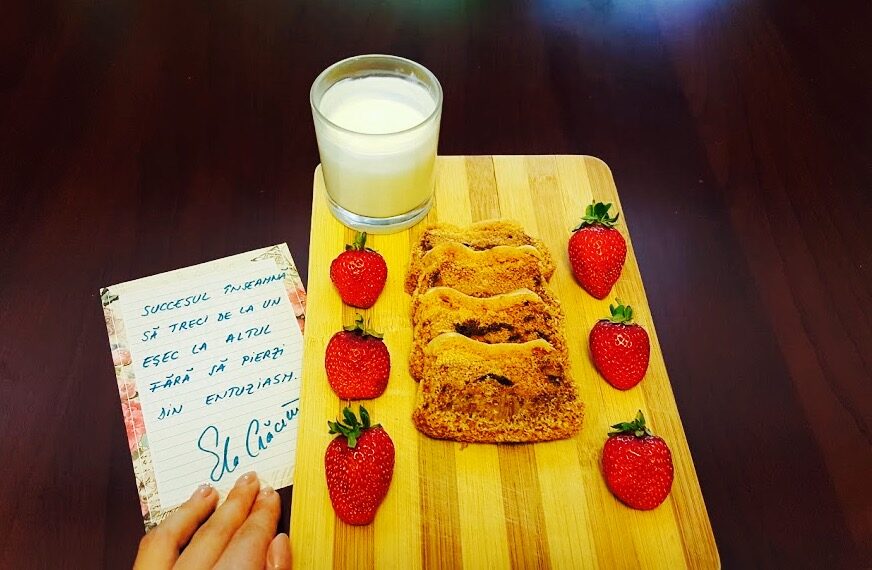 SUCCESUL ÎNSEAMNĂ
SĂ TRECI DE LA UN
EȘEC LA ALTUL
FĂRĂ SĂ PIERZI
DIN ENTUZIASM.
Ela Crăciun